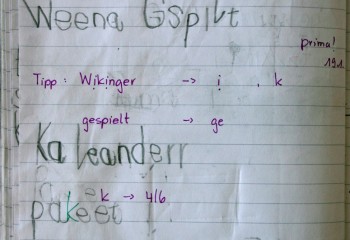 Weena Gspilt
prima!
19.1.
Tipp: Wikinger -> i . k
gespielt -> ge
Kaleanderr
k -> 4/6
pakeet